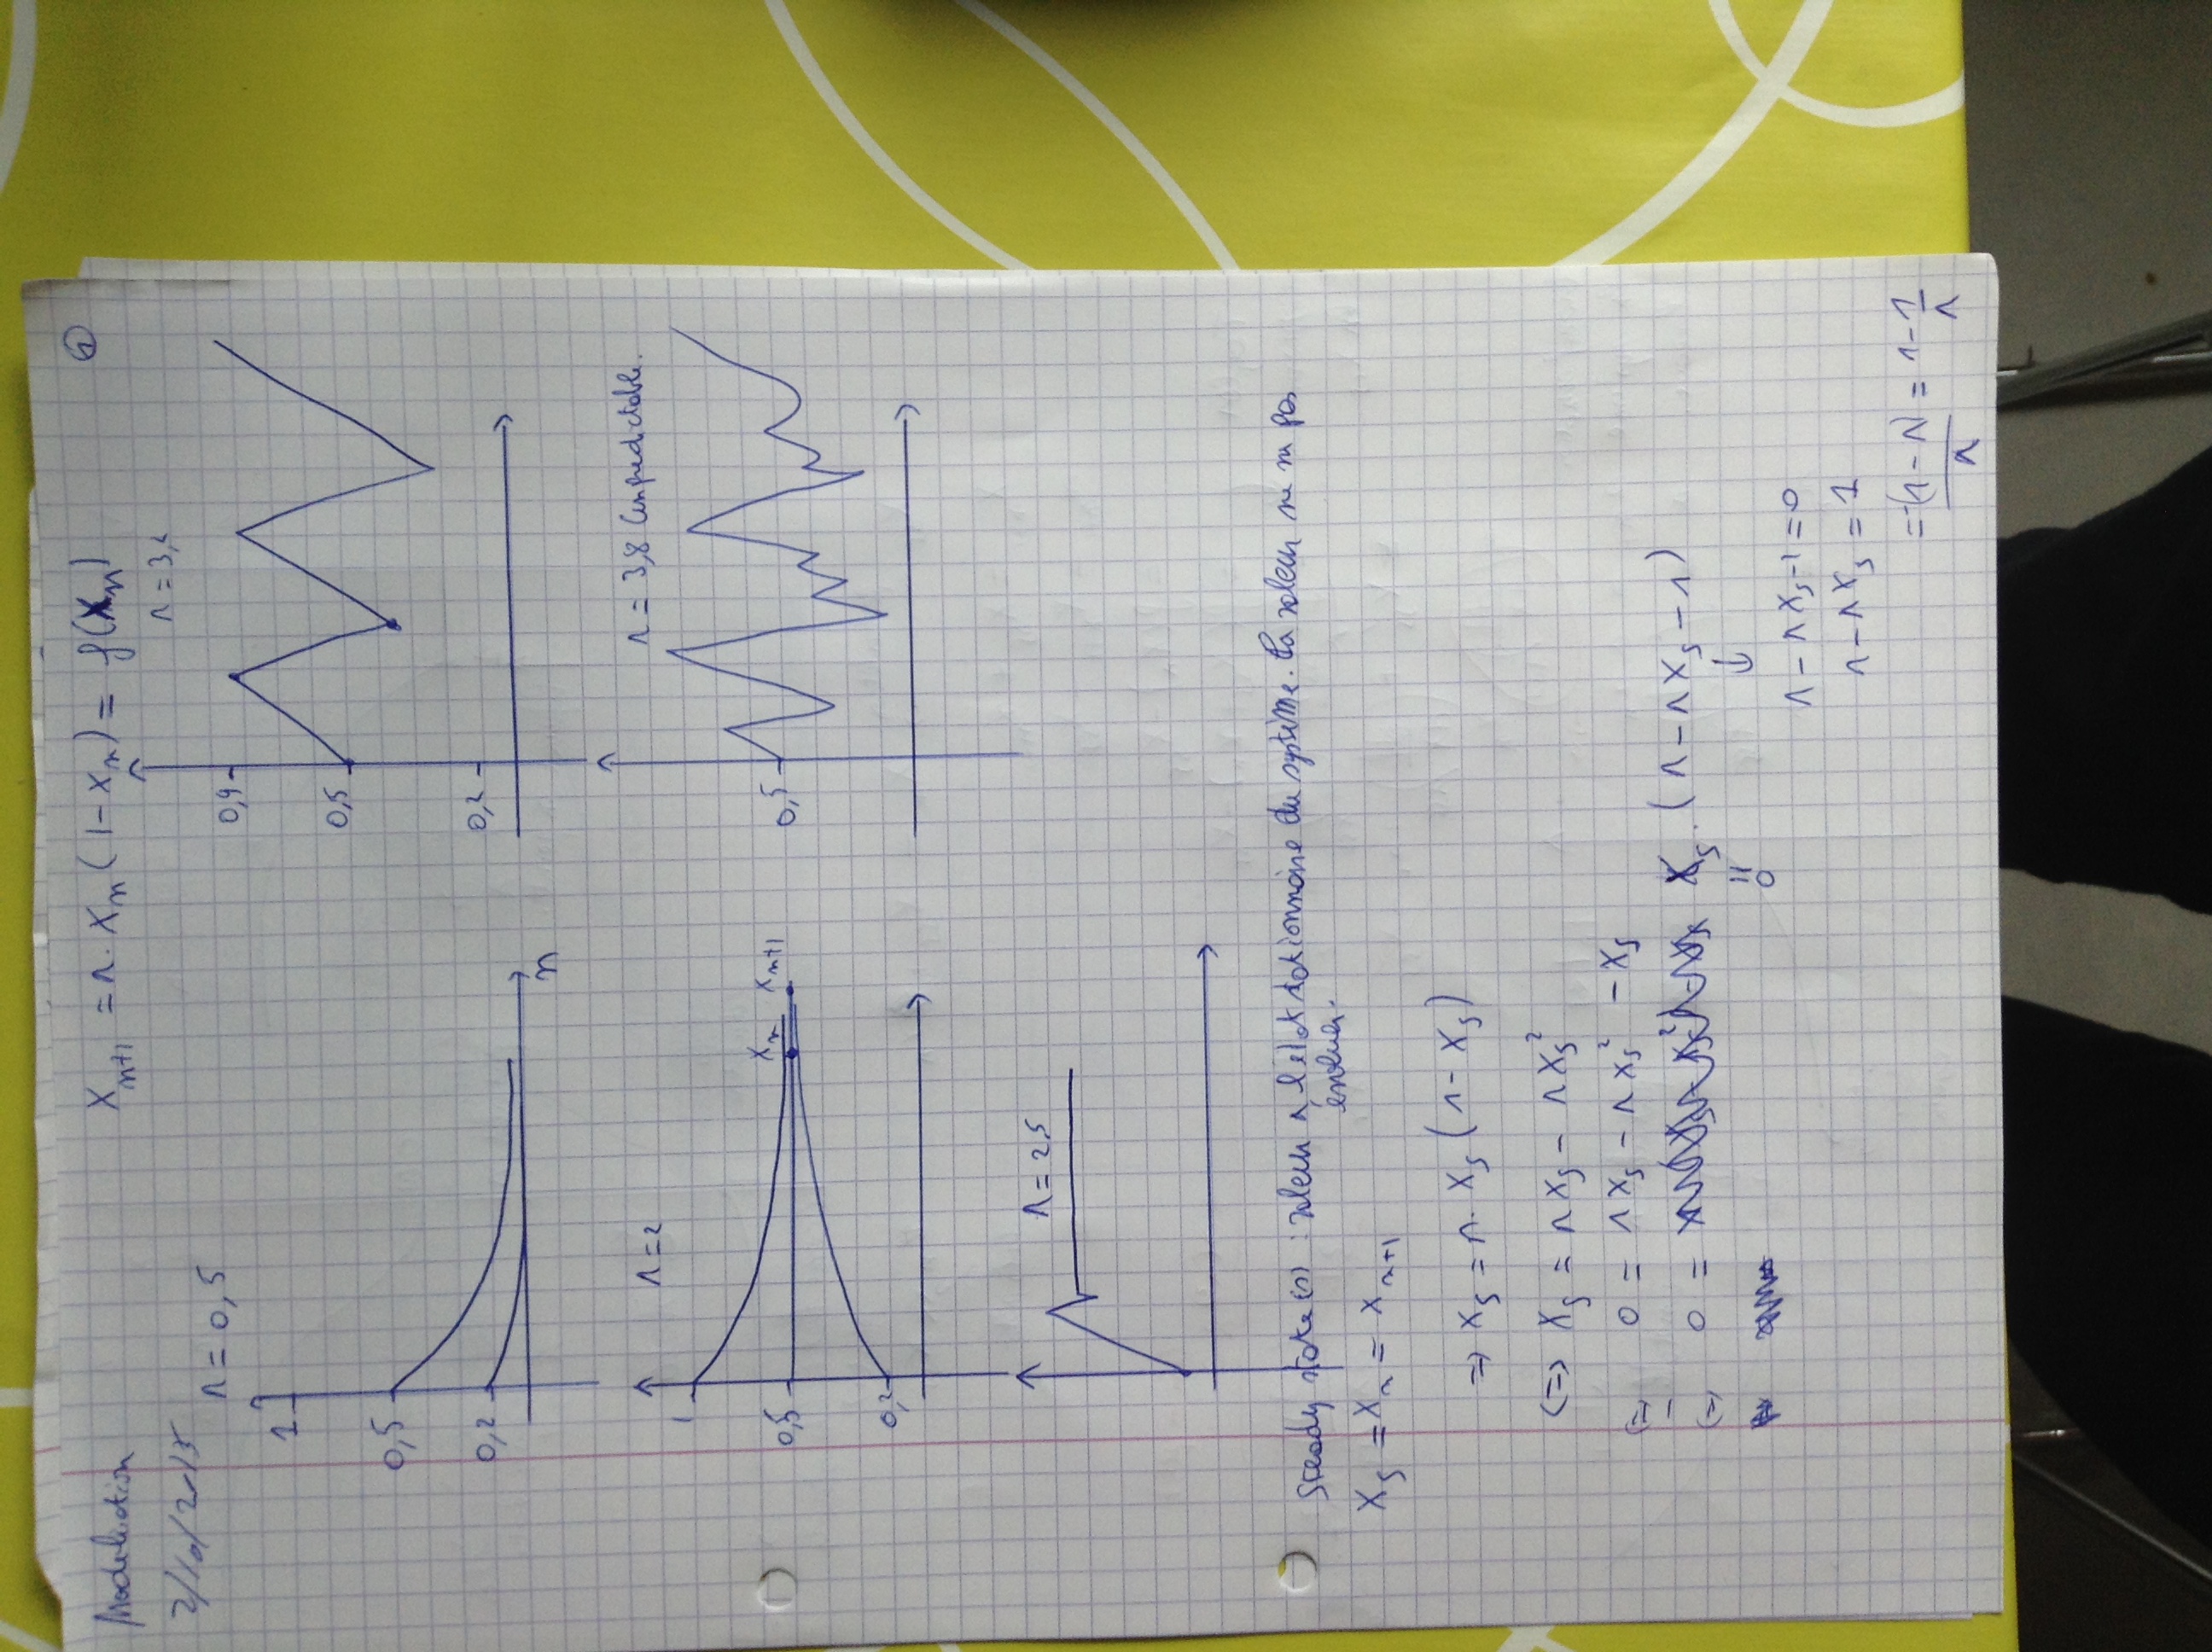 Modélisation
2/10/2015
①
X_{n+1} = r · X_n (1 - X_n) = f(X_n)
r = 0,5
1
0,5
0,2
n
r = 3,2
0,9
0,5
0,2
r = 2
1
0,5
0,2
X_n X_{n+1}
r = 3,8 (unpredictable.
0,5
r = 2,5
Steady state (s) : valeur à l'état stationnaire du système. La valeur ne m pas
évoluer.
X_s = X_n = X_{n+1}
=> X_s = r · X_s (1 - X_s)
(=) X_s = r X_s - r X_s²
(=) 0 = r X_s - r X_s² - X_s
(=) 0 = X_s · (r - r X_s - 1)
= 0
r - r X_s - 1 = 0
r - r X_s = 1
= -(1 - r) / r = 1 - 1/r